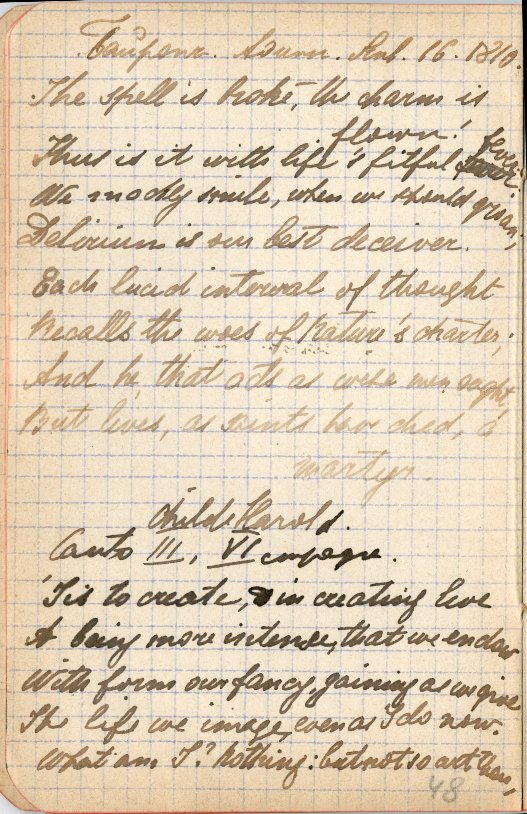 Athens. Jan. 16. 1810.
The spell is broke, the charm is
flown!
Thus is it with life's fitful fever:
We madly smile, when we should groan;
Delirium is our best deceiver.
Each lucid interval of thought
Recalls the woes of Nature's charter;
And he that acts as wise men ought,
But lives, as saints have died, a
martyr.
Childe Harold.
Canto III, VI
'Tis to create, & in creating live
A being more intense, that we endow
With form our fancy, gaining as we give
The life we image, even as I do now.
What am I? Nothing: but not so art thou,
48